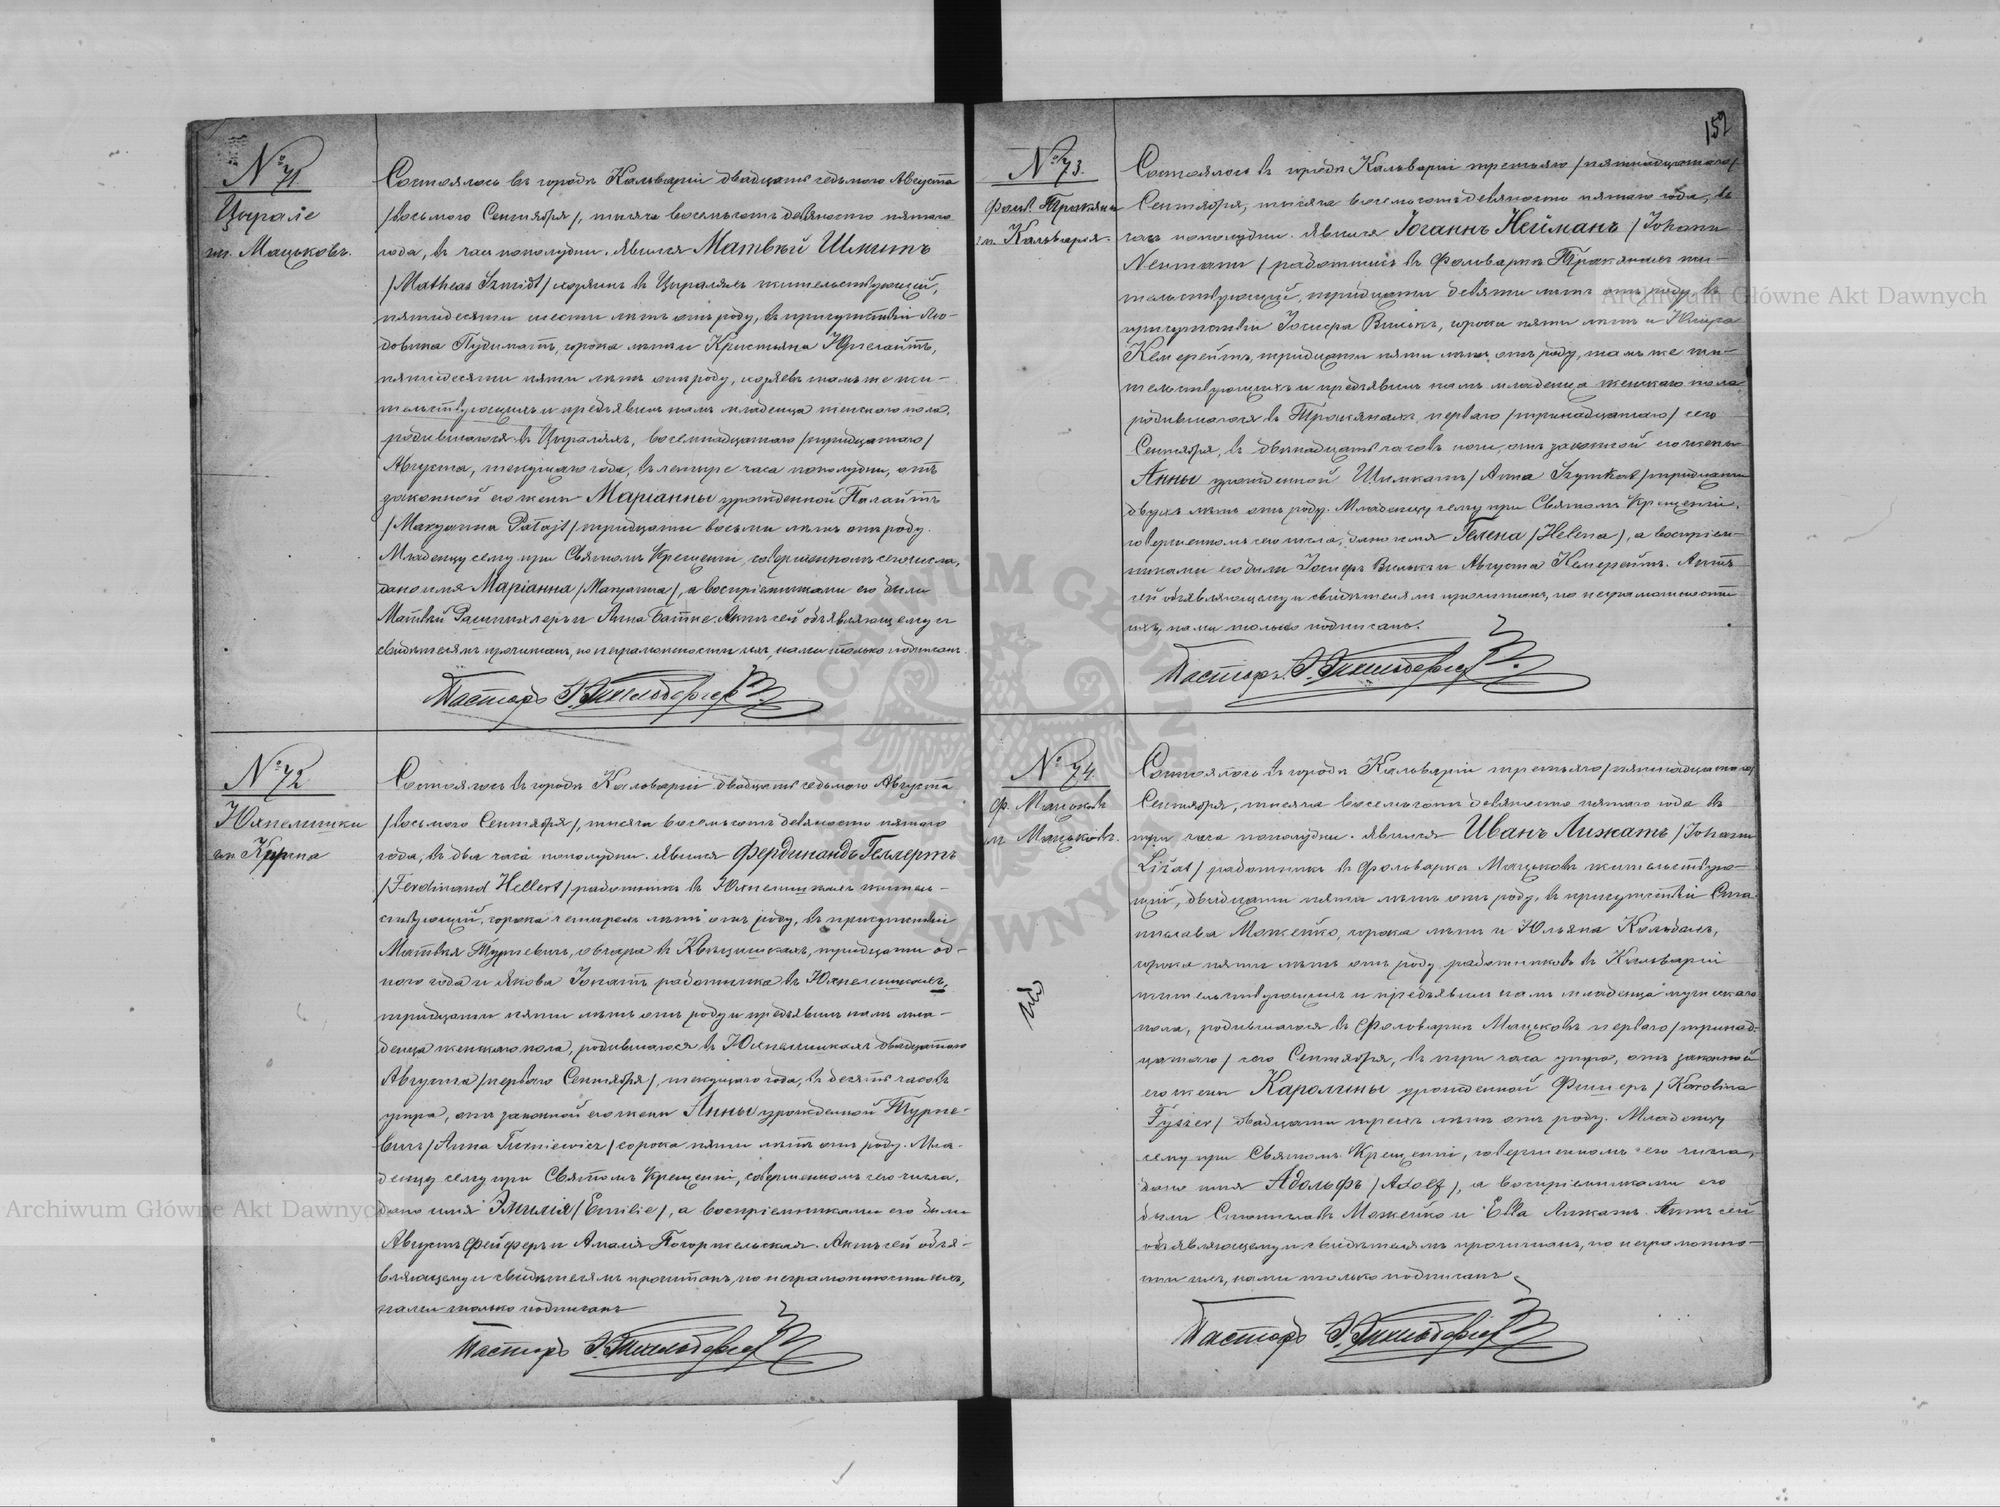 № 71.
Цирале
гм. Мацьковъ.
Состоялось въ городѣ Кальваріи двадцать седьмого Августа
/восьмого Сентября/, тысяча восемьсотъ девяносто пятаго
года, въ часъ пополудни. Явился Матвѣй Шмитъ
/Matheas Szmidt/ хозяинъ въ Циралях жительствующій,
пятидесяти шести лѣтъ отъ роду, въ присутствіи Лю-
довика Пудиматъ, сорока лѣтъ и Кристьяна
пятидесяти пяти лѣтъ отъ роду, хозяевъ тамъ же жи-
тельствующихъ и предъявилъ намъ младенца женского пола,
родившагося въ Циралях, восемнадцатаго /тридцатаго/
Августа, текущаго года, въ четыре часа пополудни, отъ
законной его жены Маріанны урожденной Палайтъ
/Maryanna Pałajt/ тридцати восьми лѣтъ отъ роду.
Младенцу сему при Святомъ Крещеніи, совершенномъ сего числа,
дано имя Маріанна /Maryanna/, а воспріемниками его были
Матвѣй и Анна Актъ сей объявляющему и
свидѣтелямъ прочитанъ, по неграмотности ихъ, нами только подписанъ.
Пасторъ
№ 72
Юхнелишки
гм. Красна
Состоялось въ городѣ Кальваріи двадцать седьмого Августа
/восьмого Сентября/, тысяча восемьсотъ девяносто пятаго
года, въ два часа пополудни. Явился Фердинандъ Геллертъ
/Ferdinand Hellert/ работникъ въ житель-
ствующій, сорока четырехъ лѣтъ отъ роду, въ присутствіи
Матвѣя Турневичъ, овчара въ тридцати од-
ного года и Якова работника въ
тридцати пяти лѣтъ отъ роду и предъявилъ намъ мла-
денца женскаго пола, родившагося въ двадцатаго
Августа /перваго Сентября/, текущаго года, въ десять часовъ
утра, отъ законной его жены Анны урожденной Турне-
вичъ /Anna Turniewicz/ сорока пяти лѣтъ отъ роду. Мла-
денцу сему при Святомъ Крещеніи, совершенномъ сего числа,
дано имя Эмилія /Emilie/, а воспріемниками его были
Августъ Фейферъ и Амалія Погоржельская. Актъ сей объя-
вляющему и свидѣтелямъ прочитанъ, по неграмотности ихъ,
нами только подписанъ
Пасторъ
152
№ 73.
Фольв. Тракяны
гм. Кальварія.
Состоялось въ городѣ Кальваріи третьяго /пятнадцатаго/
Сентября, тысяча восемьсотъ девяносто пятаго года, въ
часъ пополудни. Явился Іоганнъ Нейманъ /Johann
Neumann/ работникъ въ Фольваркѣ Тракянах жи-
тельствующій, тридцати девяти лѣтъ отъ роду, въ
присутствіи Іосифа Вилькъ, сорока пяти лѣтъ и
тридцати пяти лѣтъ отъ роду, тамъ же жи-
тельствующихъ и предъявилъ намъ младенца женскаго пола
родившагося въ Тракянахъ, перваго /тринадцатаго/ сего
Сентября, въ двѣнадцать часовъ ночи, отъ законной его жены
Анны урожденной Шимкатъ /Anna Szymkat/ тридцати
двухъ лѣтъ отъ роду. Младенцу сему при Святомъ Крещеніи,
совершенномъ сего числа, дано имя Гелена /Helena/, а воспріем-
никами его были Іосифъ Вилькъ и Августа Актъ
сей объявляющему и свидѣтелямъ прочитанъ, по неграмотности
ихъ, нами только подписанъ.
Пасторъ
№ 74.
ф. Мацьковъ
гм Мацьковъ.
Состоялось въ городѣ Кальваріи третьяго /пятнадцатаго/
Сентября, тысяча восемьсотъ девяносто пятаго года въ
три часа пополудни. Явился Иванъ Лижатъ /Johann
Liżat/ работникъ въ Фольваркѣ Мацьковъ жительствую-
щій, двадцати пяти лѣтъ отъ роду, въ присутствіи Ста-
нислава Можейко, сорока лѣтъ и Юльяна
сорока пяти лѣтъ отъ роду работниковъ въ Кальваріи
жительствующихъ и предъявилъ намъ младенца мужескаго
пола, родившагося въ Фольваркѣ Мацьковъ перваго /тринад-
цатаго/ сего Сентября, въ три часа утра, отъ законной
его жены Каролины урожденной Фишеръ /Karolina
Fyszer/ двадцати трехъ лѣтъ отъ роду. Младенцу
сему при Святомъ Крещеніи, совершенномъ сего числа,
дано имя Адольфъ /Adolf/, а воспріемниками его
были Станиславъ Можейко и Ева Лижатъ. Актъ сей
объявляющему и свидѣтелямъ прочитанъ, по неграмотно-
сти ихъ, нами только подписанъ.
Пасторъ
Archiwum Główne Akt Dawnych
Archiwum Główne Akt Dawnych
ARCHIWUM GŁÓWNE AKT DAWNYCH